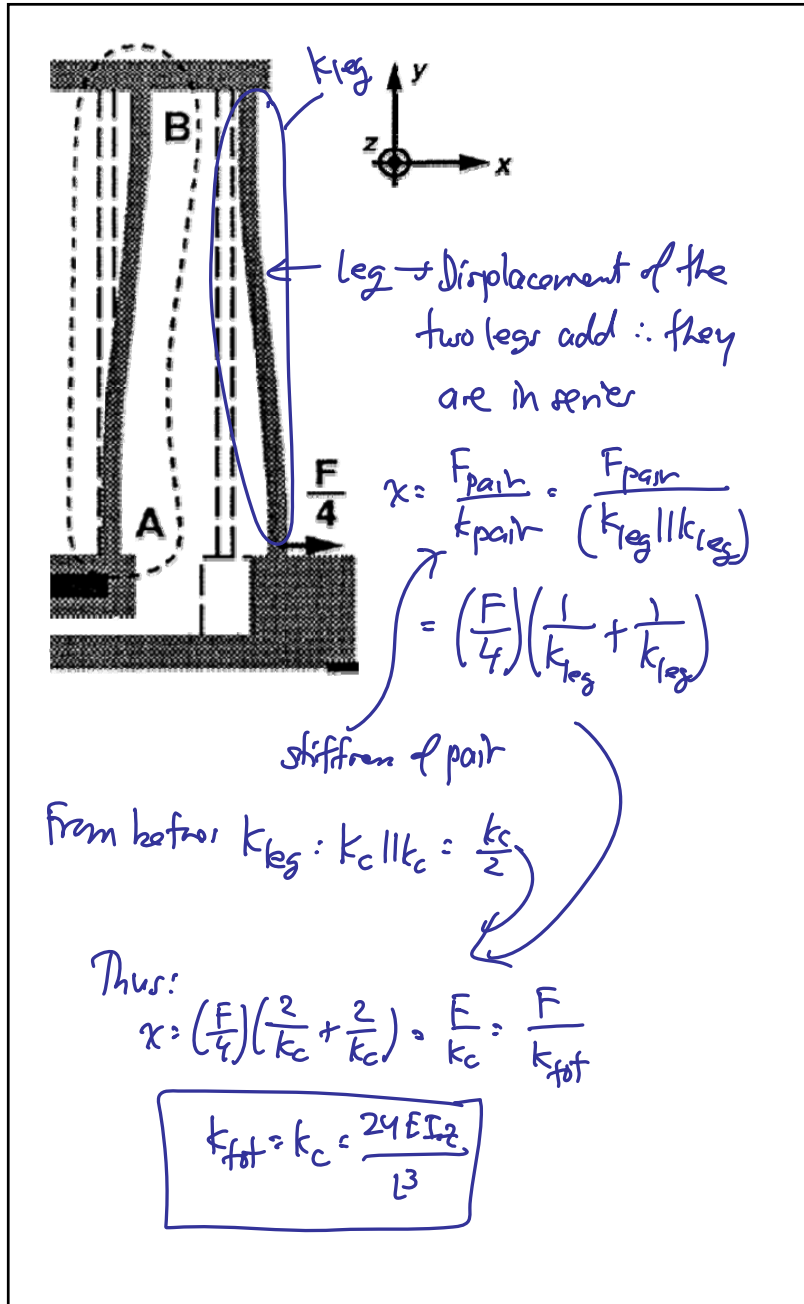 k_leg
y
z
x
B
A
F/4
leg → Displacement of the
two legs add ∴ they
are in series
x = F_pair / k_pair = F_pair / (k_leg || k_leg)
= (F/4)(1/k_leg + 1/k_leg)
stiffness of pair
From before k_leg = k_c || k_c = k_c/2
Thus:
x = (F/4)(2/k_c + 2/k_c) = F/k_c = F/k_tot
k_tot = k_c = 24EI_z/L³